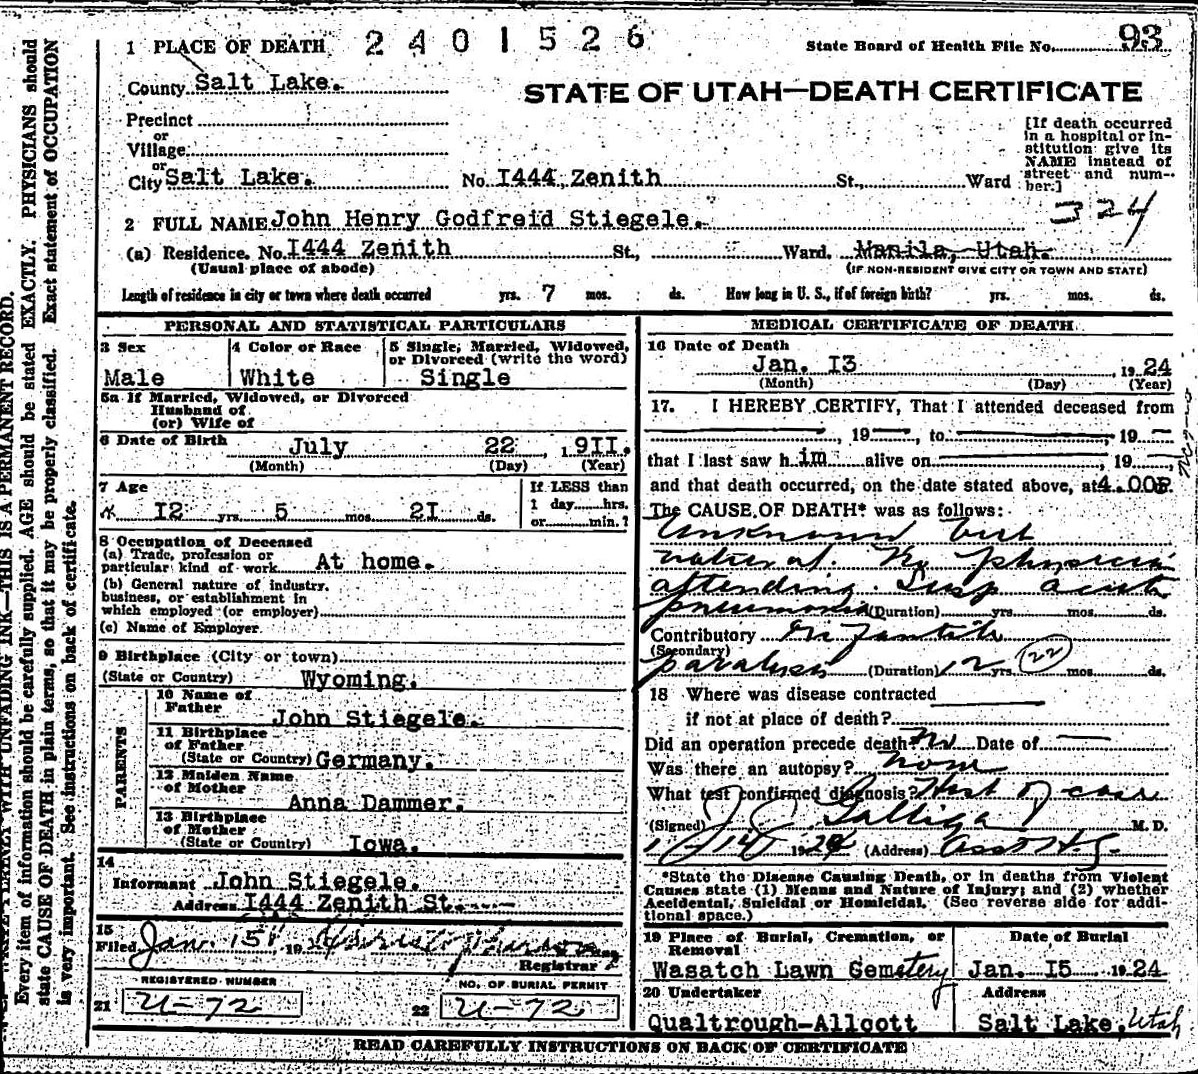 1 PLACE OF DEATH 2401526
State Board of Health File No. 93
County Salt Lake.
STATE OF UTAH—DEATH CERTIFICATE
Precinct
or
Village
or
City Salt Lake. No. I444 Zenith St., Ward
[If death occurred
in a hospital or in-
stitution give its
NAME instead of
street and num-
ber.]
324
2 FULL NAME John Henry Godfreid Stiegele.
(a) Residence. No. I444 Zenith St., Ward. Manila, Utah.
(Usual place of abode) (IF NON-RESIDENT GIVE CITY OR TOWN AND STATE)
Length of residence in city or town where death occurred yrs. 7 mos. ds. How long in U. S., if of foreign birth? yrs. mos. ds.
PERSONAL AND STATISTICAL PARTICULARS
3 Sex
Male
4 Color or Race
White
5 Single, Married, Widowed,
or Divorced (write the word)
Single
5a If Married, Widowed, or Divorced
Husband of
(or) Wife of
6 Date of Birth July 22, 19II.
(Month) (Day) (Year)
7 Age
I2 yrs. 5 mos. 2I ds.
If LESS than
1 day hrs.
or min.?
8 Occupation of Deceased
(a) Trade, profession or
particular kind of work At home.
(b) General nature of industry.
business, or establishment in
which employed (or employer)
(c) Name of Employer
9 Birthplace (City or town)
(State or Country) Wyoming.
PARENTS
10 Name of
Father John Stiegele.
11 Birthplace
of Father
(State or Country) Germany.
12 Maiden Name
of Mother
Anna Dammer.
13 Birthplace
of Mother
(State or Country) Iowa.
14
Informant John Stiegele.
Address I444 Zenith St.
15
Filed Jan. 15 19
Registrar
REGISTERED NUMBER
21 U-72
NO. OF BURIAL PERMIT
22 U-72
MEDICAL CERTIFICATE OF DEATH
16 Date of Death
Jan. I3, 1924
(Month) (Day) (Year)
17. I HEREBY CERTIFY, That I attended deceased from
, 19 , to , 19
that I last saw h im alive on , 19 ,
and that death occurred, on the date stated above, at 4.00P.
The CAUSE OF DEATH* was as follows:
Unknown but
natural. No physician
attending. Susp acute
pneumonia (Duration) yrs. mos. ds.
Contributory Infantile
(Secondary)
paralysis (Duration) 12 yrs. 22 mos. ds.
18 Where was disease contracted
if not at place of death?
Did an operation precede death? No Date of
Was there an autopsy? none
What test confirmed diagnosis? Hist of case
(Signed) M. D.
1-14 1924 (Address) Asst H.
*State the Disease Causing Death, or in deaths from Violent
Causes state (1) Means and Nature of Injury; and (2) whether
Accidental, Suicidal or Homicidal. (See reverse side for addi-
tional space.)
19 Place of Burial, Cremation, or
Removal
Wasatch Lawn Cemetery
Date of Burial
Jan. I5 1924
20 Undertaker
Qualtrough-Allcott
Address
Salt Lake, Utah
READ CAREFULLY INSTRUCTIONS ON BACK OF CERTIFICATE
WITH UNFADING INK—THIS IS A PERMANENT RECORD.
Every item of information should be carefully supplied. AGE should be stated EXACTLY. PHYSICIANS should
state CAUSE OF DEATH in plain terms, so that it may be properly classified. Exact statement of OCCUPATION
is very important. See instructions on back of certificate.